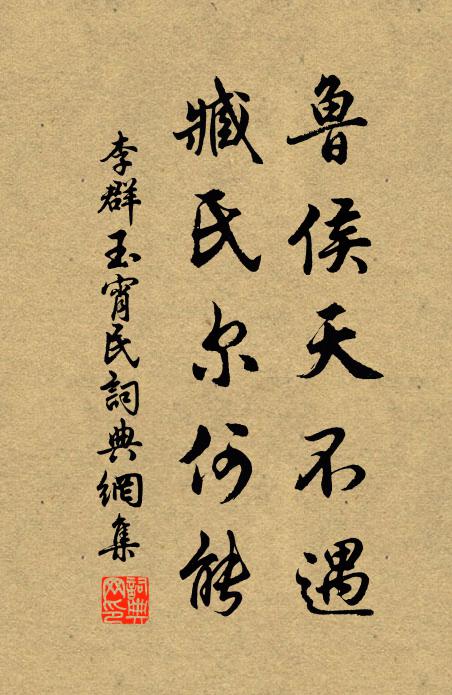 鲁侯天不遇
臧氏尔何能
李群玉宵民詞典網集
詞典网印